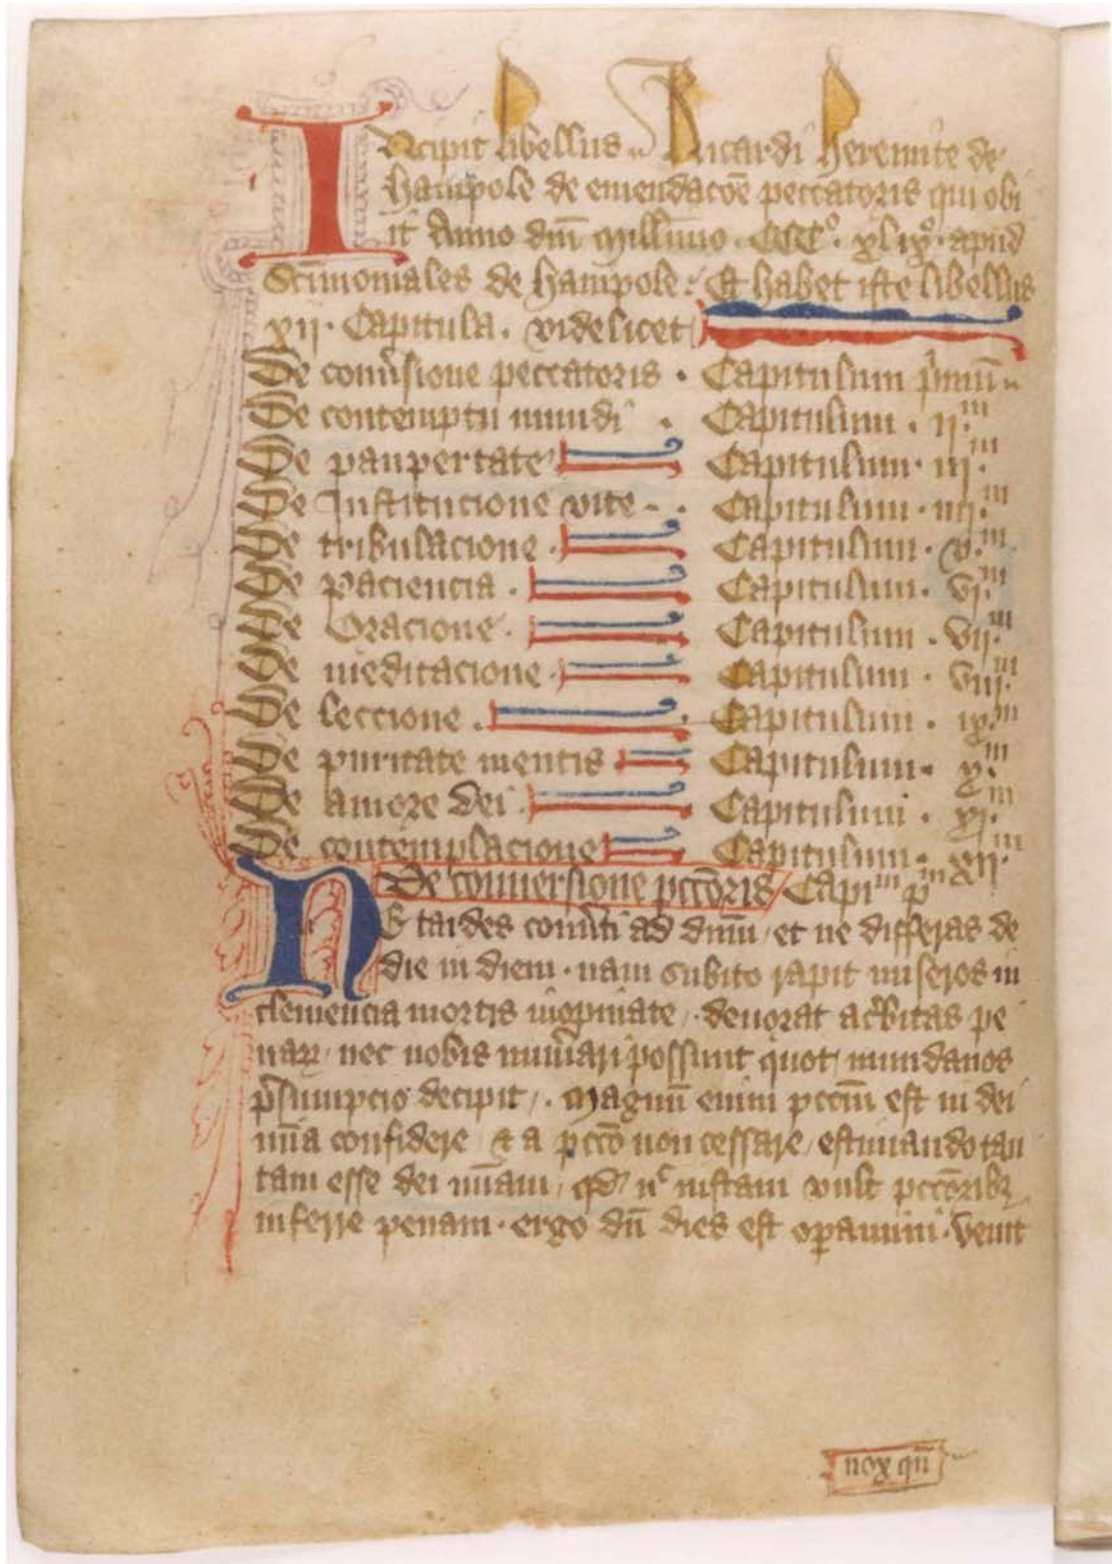 Incipit libellus Ricardi heremite de
hampole de emendacōe peccatoris qui obi
it Anno dn̄i Millimo CCCº xlixº apud
Scimoniales de hampole : Et habet iste libellus
xii · Capitula . videlicet
De conūsione peccatoris · Capitulum pͥmū
De contemptu mundi . Capitulum · ii·ᵐ
De paupertate Capitulum · iii·ᵐ
De Institucione vite . Capitulum · iiii·ᵐ
De tribulacione · Capitulum · v·ᵐ
De paciencia . Capitulum · vi·ᵐ
De Oracione · Capitulum · vii·ᵐ
De meditacione · Capitulum · viii·ᵐ
De leccione . Capitulum · ix·ᵐ
De puritate mentis Capitulum · x·ᵐ
De amore dei · Capitulum · xi·ᵐ
De contemplacione Capitulum · xii·ᵐ
De conuersione pccōris Capiᵐ pᵐ
Ne tardes conūti ad dn̄m / et ne differas de
die in diem · nam subito rapit miseros in
clemencia mortis inopinate / · deuorat ac̄bitas pe
naꝝ / nec nobis nūiari possunt quot mundanos
p̄sumpcio decipit / . Magnū enim pccm̄ est in dei
mīa confidere & a pccō non cessare / estimando tan
tam esse dei mīam / qd / nᶜ iustam vult pccōribꝫ
inferre penam · ergo dū dies est opamini · venit
nox qn̄